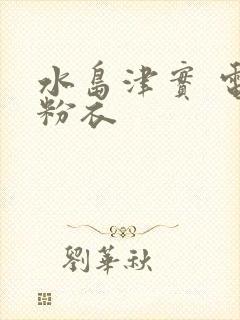 水島津實 電
粉衣
劉華秋